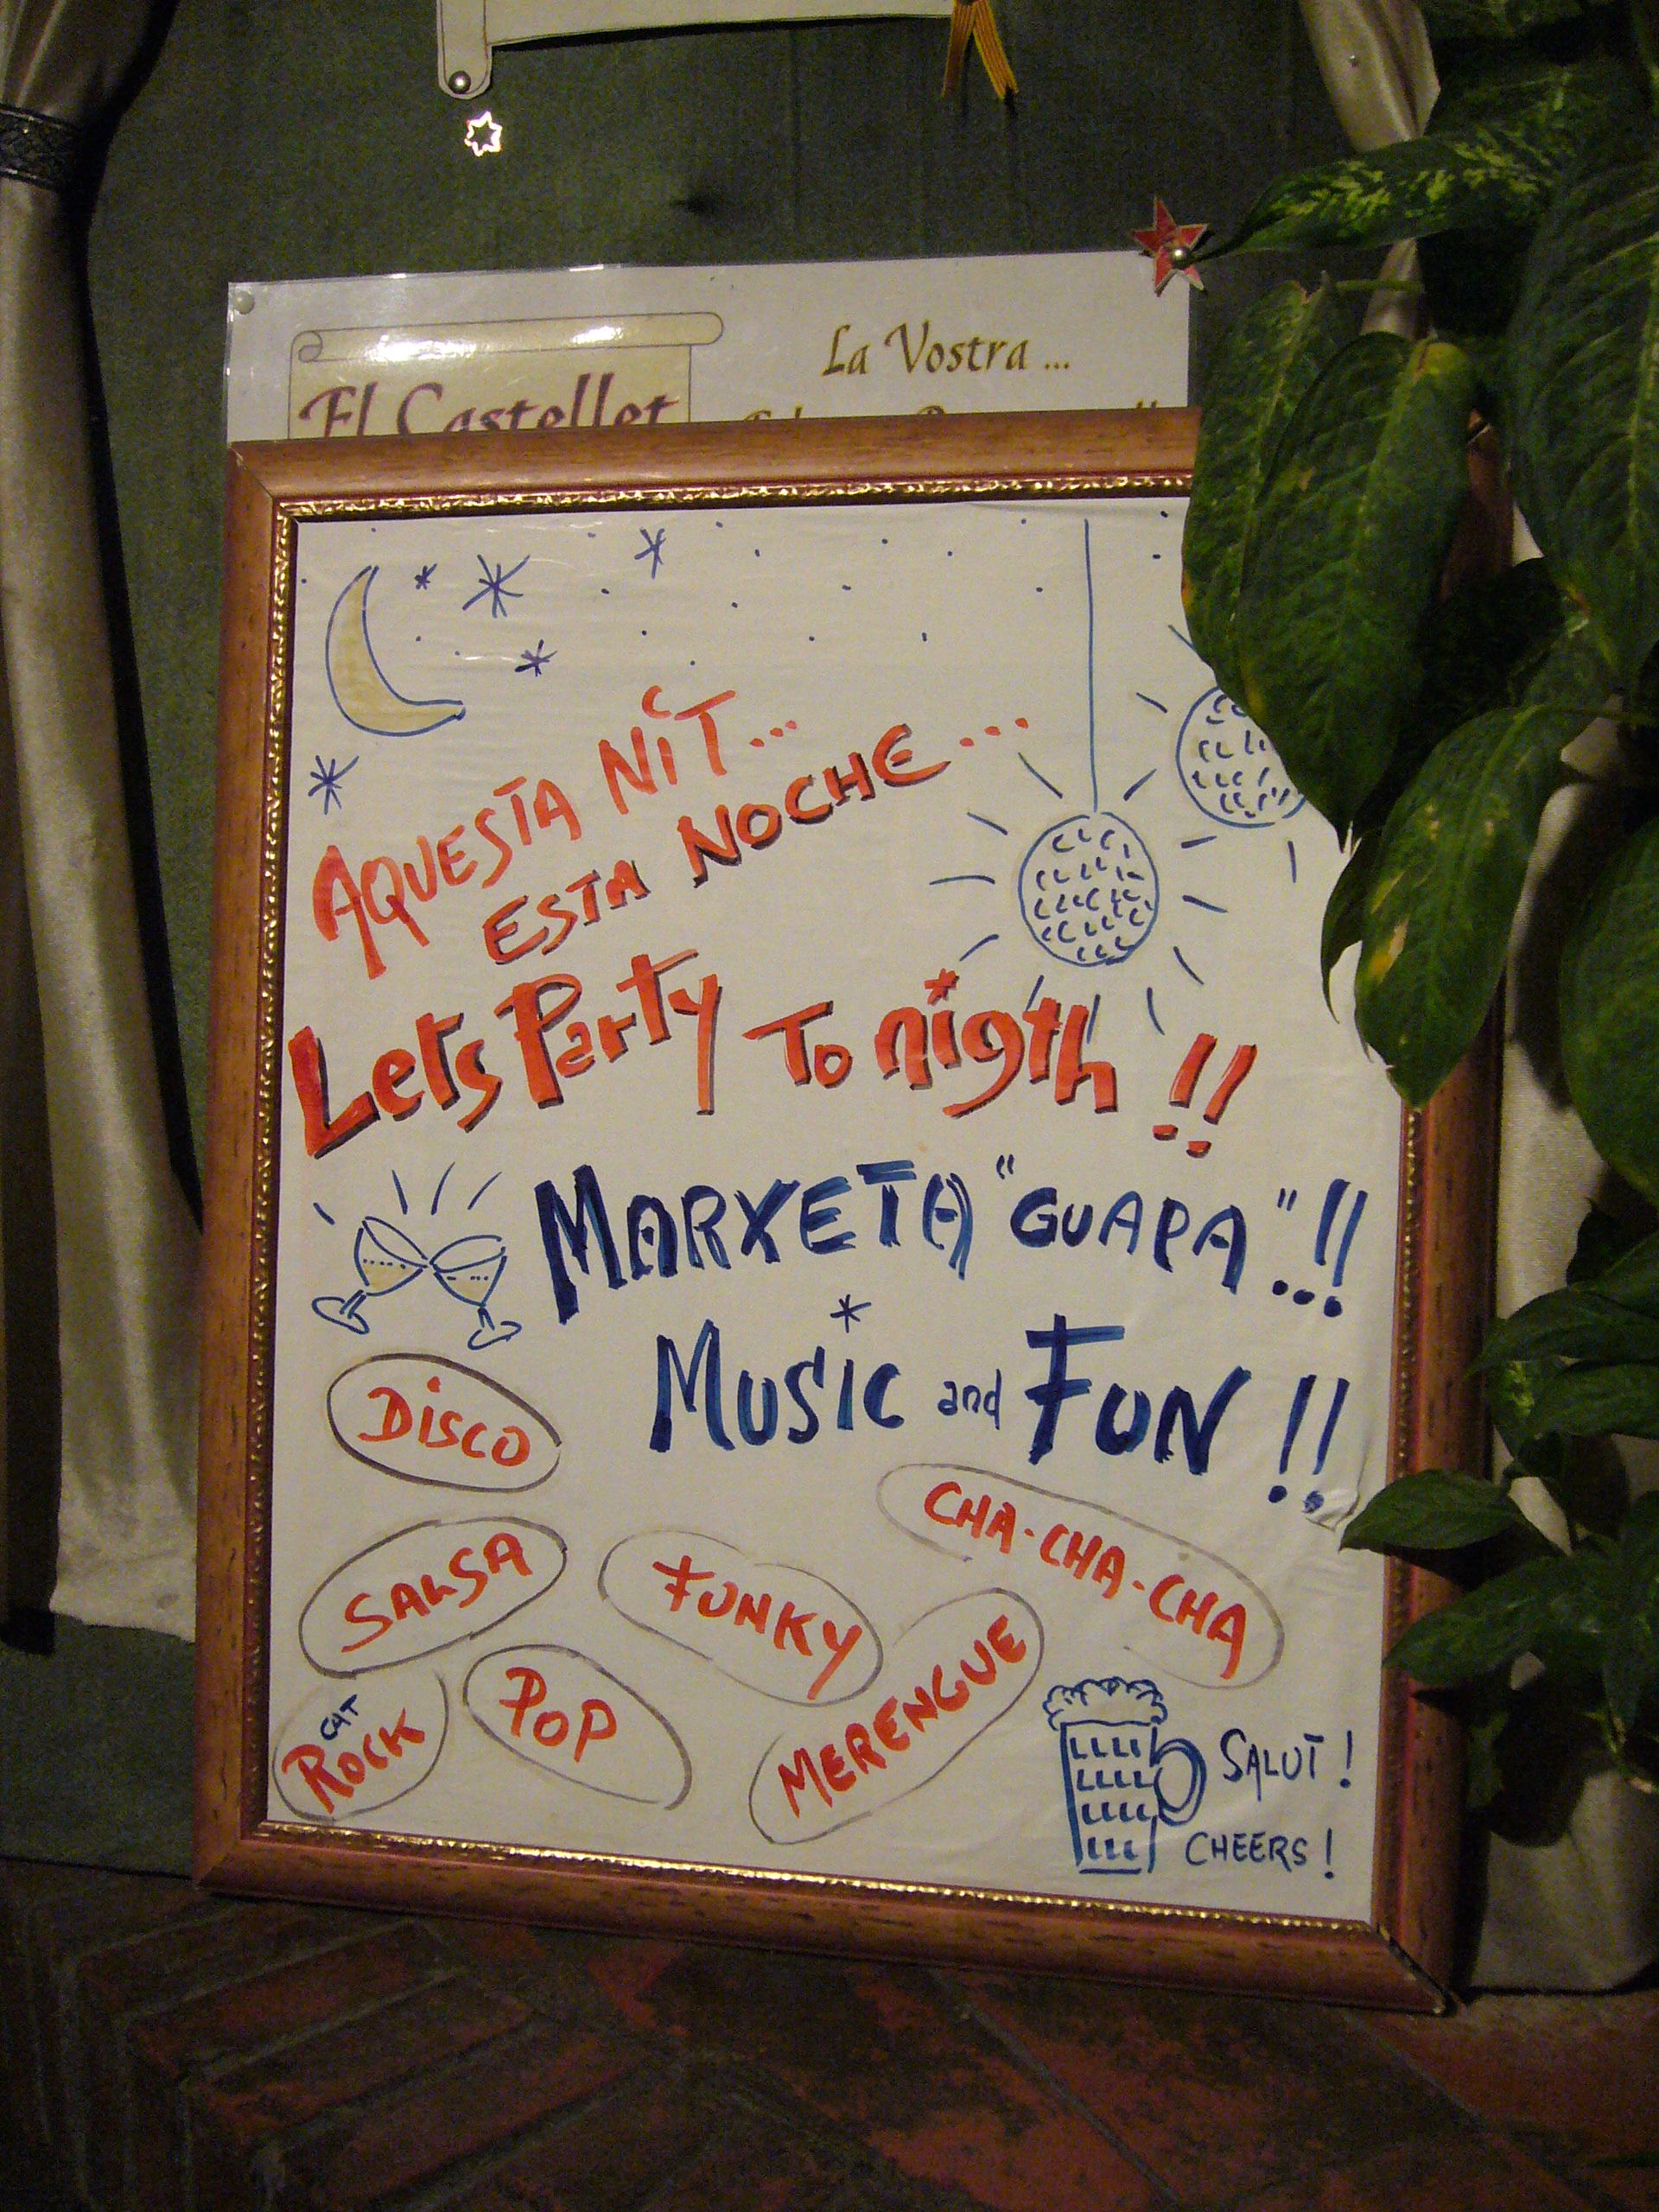 El Castellet
La Vostra ...
AQUESTA NIT...
ESTA NOCHE...
Let's Party To nigth !!
MARXETA "GUAPA"..!!
MUSIC and FUN !!
DISCO
CHA-CHA-CHA
SALSA
FUNKY
CAT
ROCK
POP
MERENGUE
SALUT !
CHEERS !